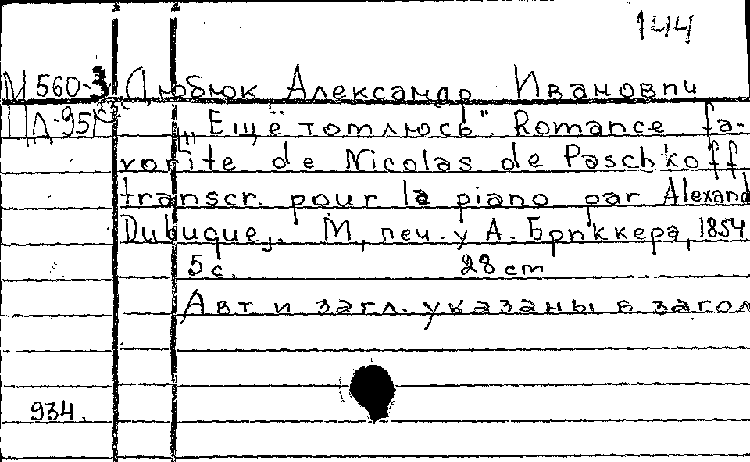 144
М 560-3 Дюбюк Александр Иванович
Д-95 „Ещё томлюсь" Romance fa-
vorite de Nicolas de Paschkoff,
transcr. pour la piano par Alexand
Dubuque,. М, печ. у А. Бриккера, 1854
5 с. 28 cm
Авт и загл. указаны в загол
934.